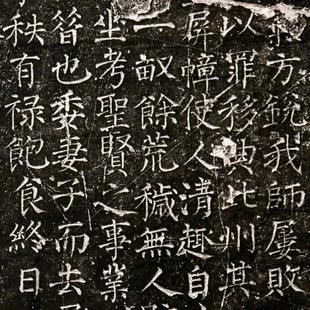 方銳我師屢敗
以罪移典此州其
屏幛使人清趣自
一畝餘荒穢無人
坐考聖賢之事業
簪也委妻子而去
秩有祿飽食終日